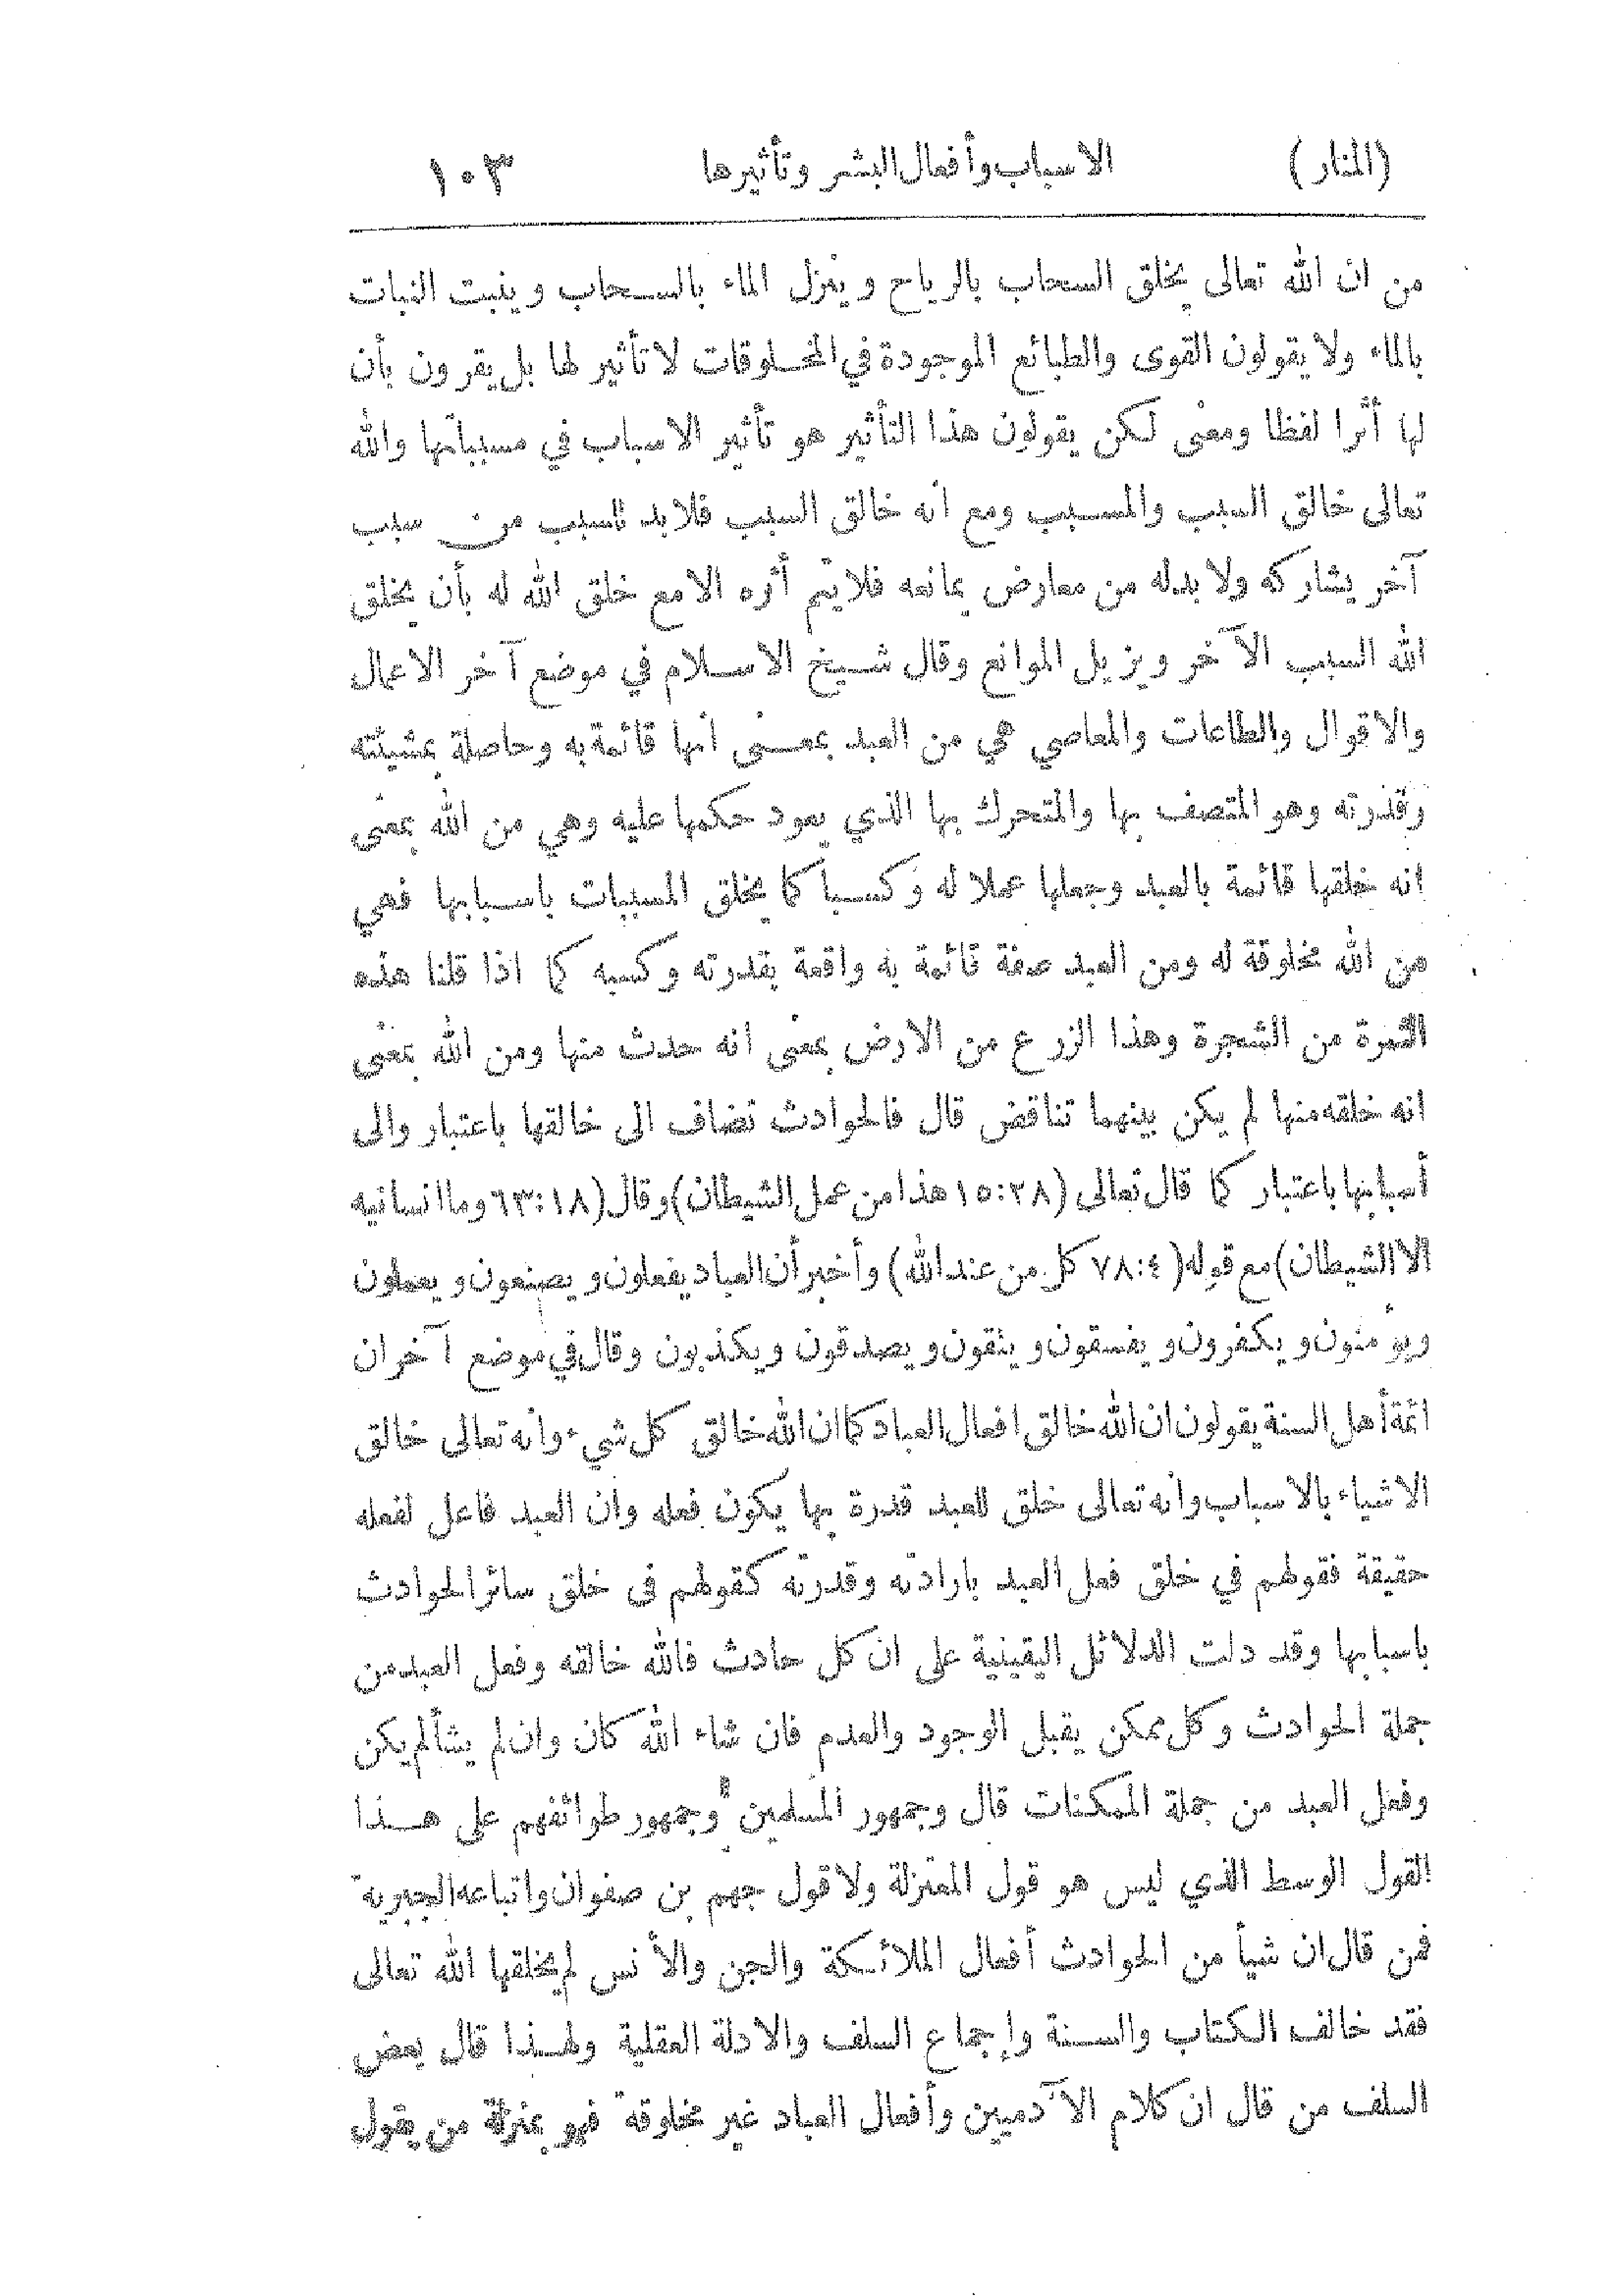 (المنار) الاسباب وأفعال البشر وتأثيرها ١٠٣
من ان الله تعالى يخلق السحاب بالرياح وينزل الماء بالسحاب وينبت النبات
بالماء ولا يقولون القوى والطبائع الموجودة في المخلوقات لا تأثير لها بل يقرون بأن
لها أثرا لفظا ومعنى لكن يقولون هذا التأثير هو تأثير الاسباب في مسبباتها والله
تعالى خالق السبب والمسبب ومع انه خالق السبب فلابد للسبب من سبب
آخر يشاركه ولا بدله من معارض يمانعه فلا يتم أثره الا مع خلق الله له بأن يخلق
الله السبب الآخر ويزيل الموانع وقال شيخ الاسلام في موضع آخر الاعمال
والاقوال والطاعات والمعاصي هي من العبد بمعنى انها قائمة به وحاصلة بمشيئته
وقدرته وهو المتصف بها والمتحرك بها الذي يعود حكمها عليه وهي من الله بمعنى
انه خلقها قائمة بالعبد وجعلها عملا له وكسبا كما يخلق المسببات باسبابها فهي
من الله مخلوقة له ومن العبد صفة قائمة به واقعة بقدرته وكسبه كما اذا قلنا هذه
الثمرة من الشجرة وهذا الزرع من الارض بمعنى انه حدث منها ومن الله بمعنى
انه خلقه منها لم يكن بينهما تناقض قال فالحوادث تضاف الى خالقها باعتبار والى
أسبابها باعتبار كما قال تعالى (١٥:٢٨ هذا من عمل الشيطان) وقال (٦٣:١٨ وما انسانيه
الا الشيطان) مع قوله (٧٨:٤ كل من عند الله) وأخبر أن العباد يفعلون ويصنعون ويعملون
ويؤمنون ويكفرون ويفسقون ويتقون ويصدقون ويكذبون وقال في موضع آخر ان
ائمة أهل السنة يقولون ان الله خالق افعال العباد كما ان الله خالق كل شيء وانه تعالى خالق
الاشياء بالاسباب وانه تعالى خلق للعبد قدرة بها يكون فعله وان العبد فاعل لفعله
حقيقة فقولهم في خلق فعل العبد بارادته وقدرته كقولهم في خلق سائر الحوادث
باسبابها وقد دلت الدلائل اليقينية على ان كل حادث فالله خالقه وفعل العبد من
جملة الحوادث وكل ممكن يقبل الوجود والعدم فان شاء الله كان وان لم يشألم يكن
وفعل العبد من جملة الممكنات قال وجمهور المسلمين وجمهور طوائفهم على هذا
القول الوسط الذي ليس هو قول المعتزلة ولا قول جهم بن صفوان واتباعه الجبرية
فمن قال ان شيأ من الحوادث أفعال الملائكة والجن والأنس لم يخلقها الله تعالى
فقد خالف الكتاب والسنة وإجماع السلف والادلة العقلية ولهذا قال بعض
السلف من قال ان كلام الآدميين وأفعال العباد غير مخلوقة فهو بمنزلة من يقول